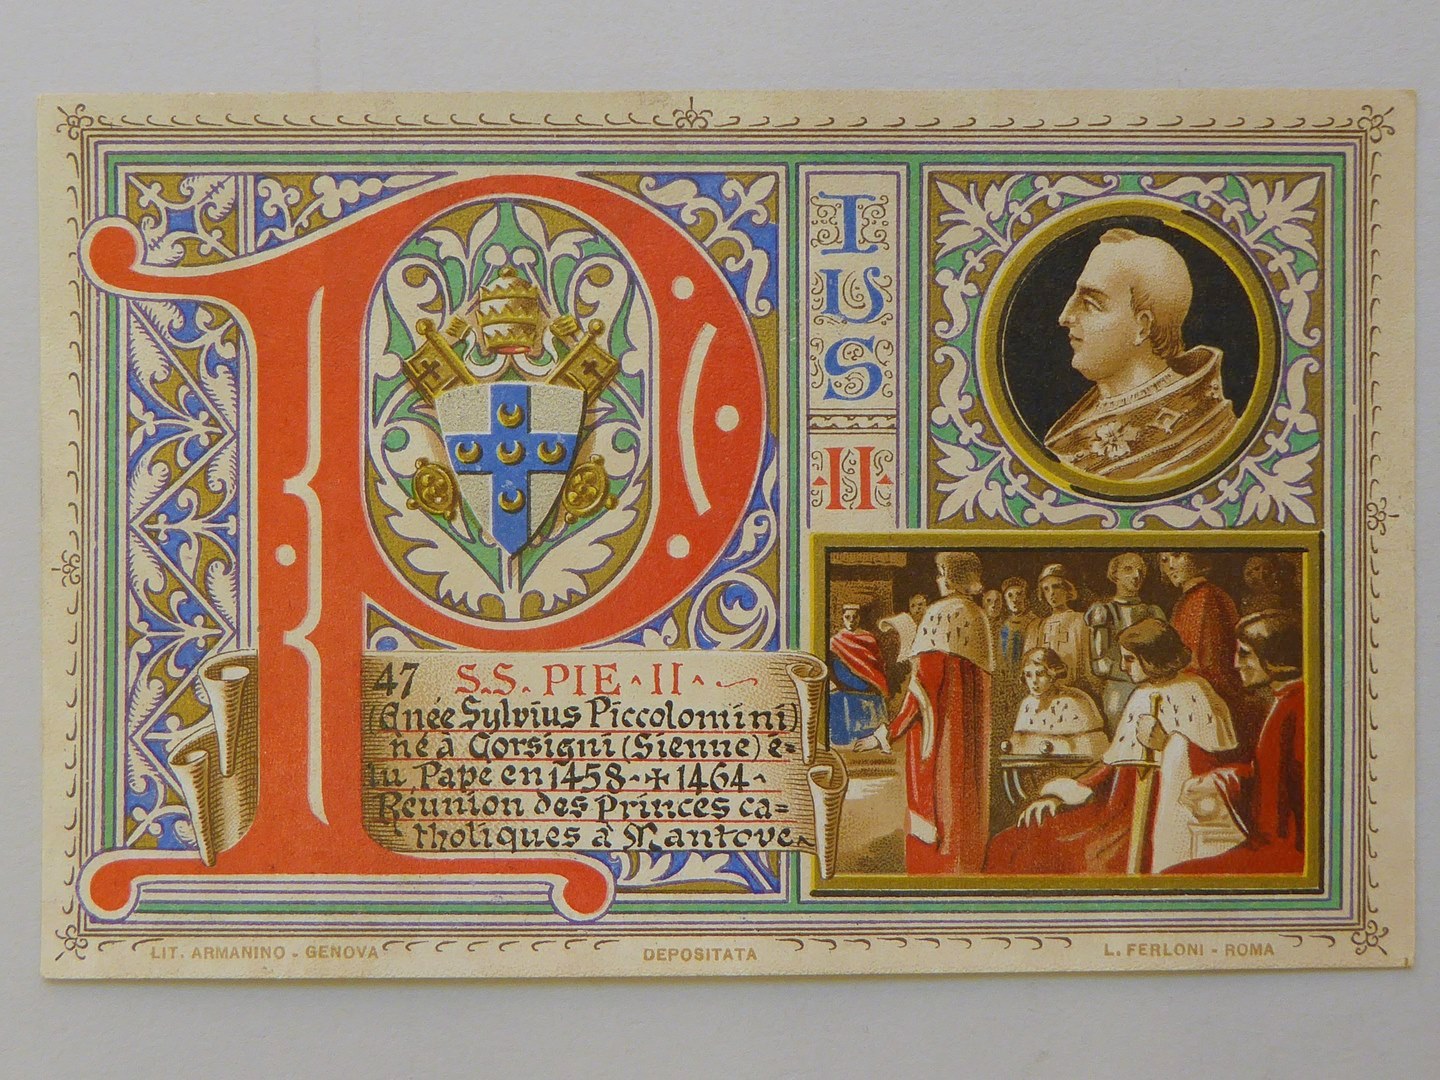 PIUS
II
47 S.S. PIE II
(Enée Sylvius Piccolomini)
né à Corsigni (Sienne) é-
lu Pape en 1458 - + 1464
Réunion des Princes ca=
tholiques à Mantove
LIT. ARMANINO - GENOVA
DEPOSITATA
L. FERLONI - ROMA